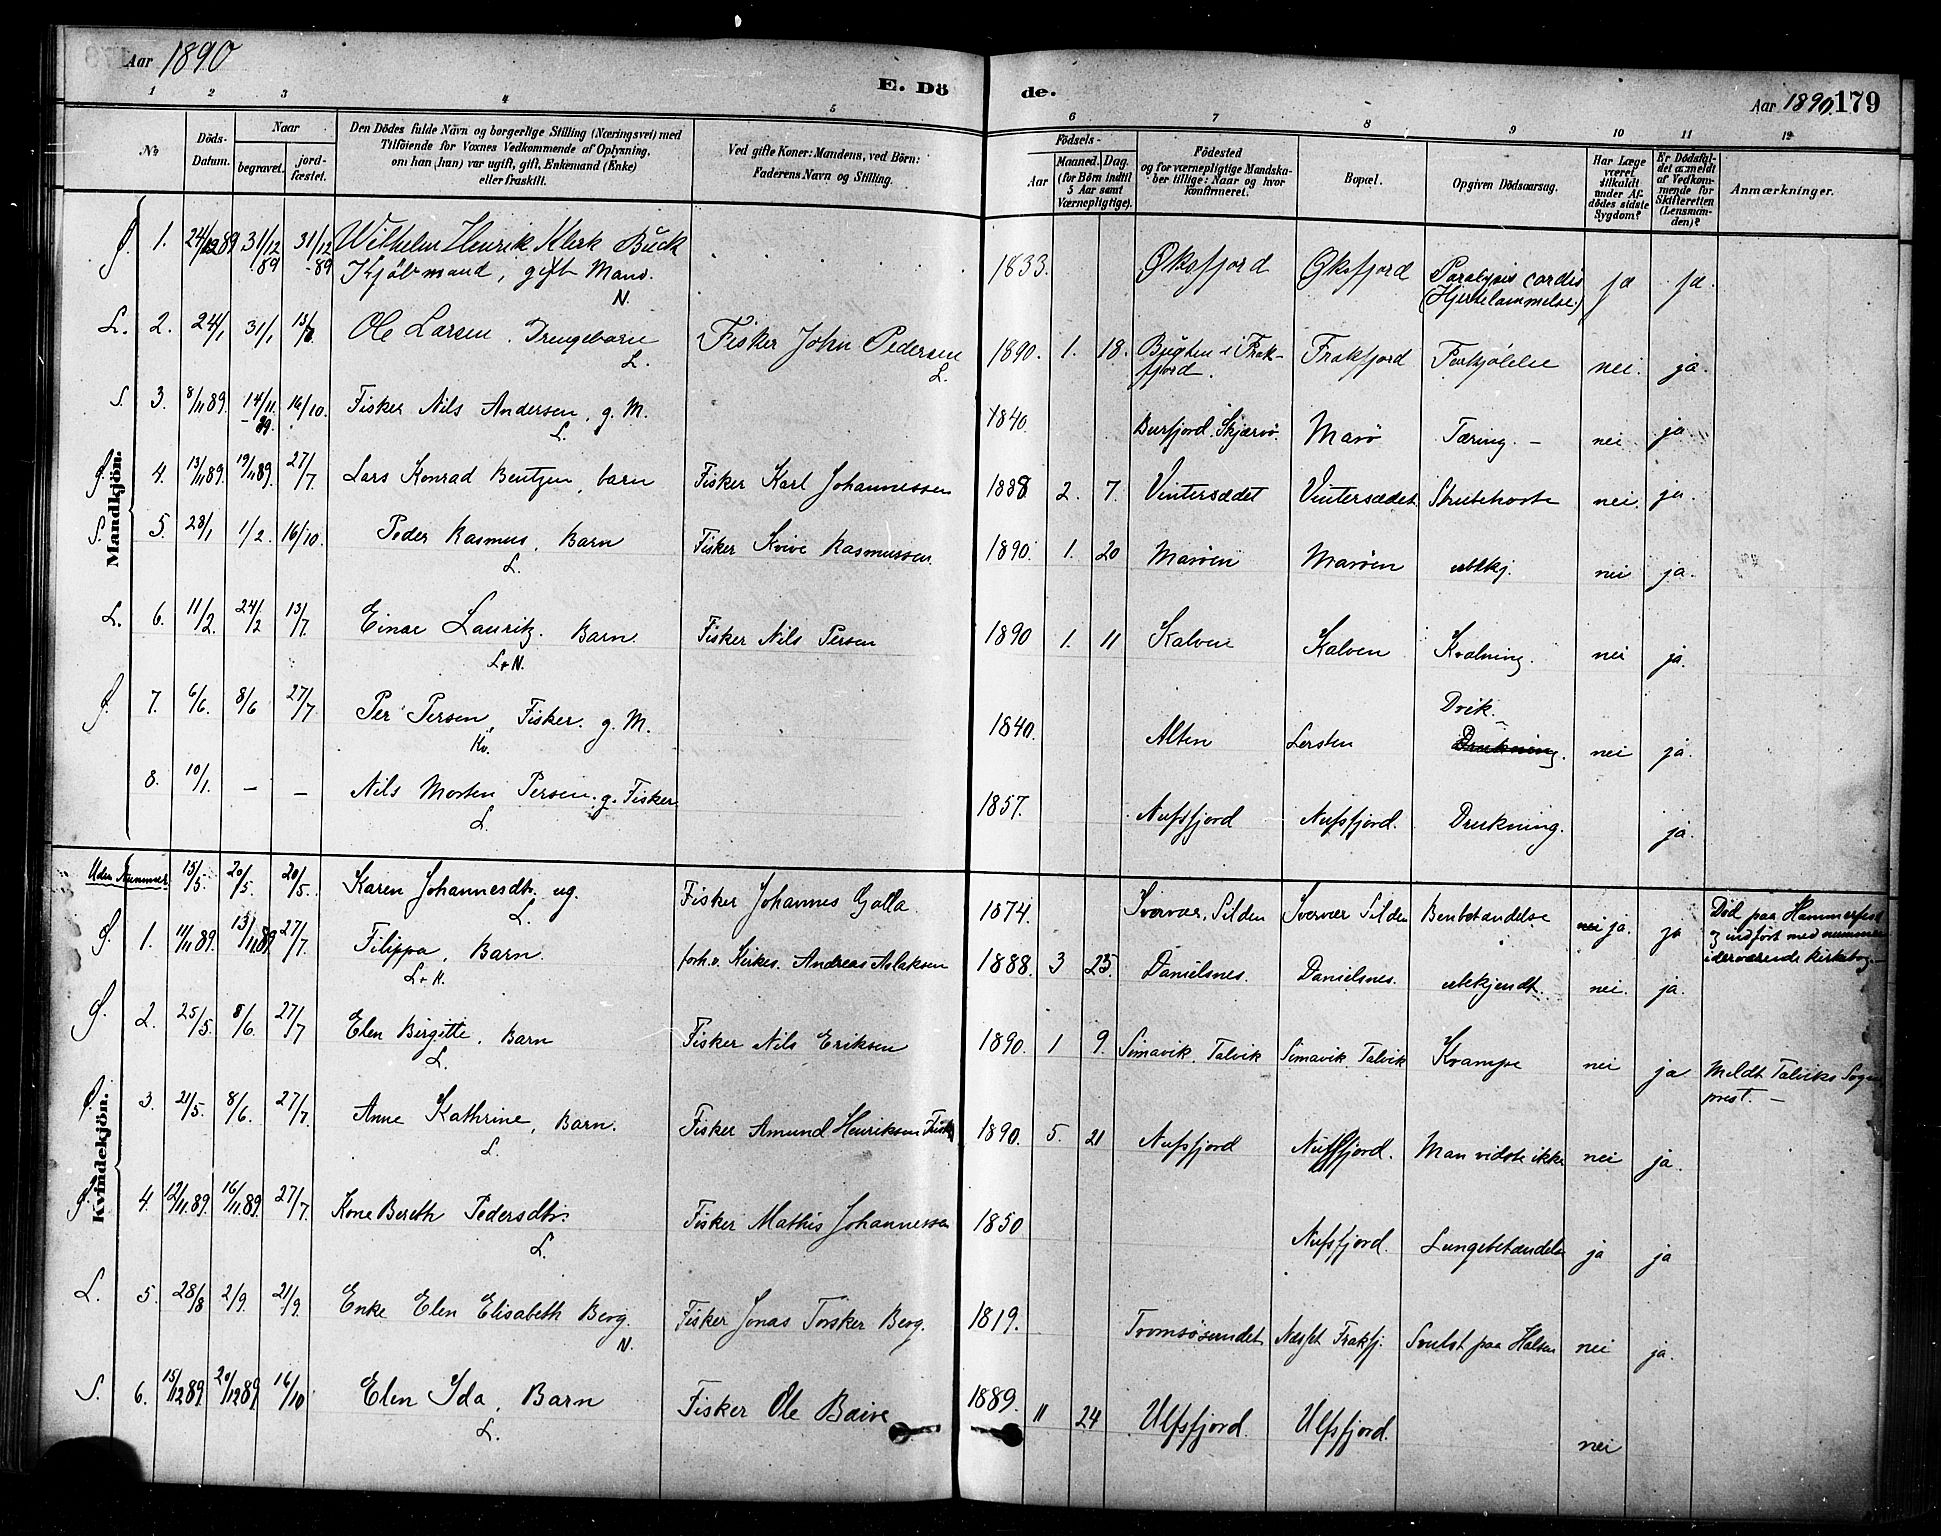 Aar 1890
E. Dö de.
Aar 1890. 179
1 2 3 4 5 6 7 8 9 10 11 12
No
Döds-Datum.
Naar
begravet.
jord-fæstet.
Den Dödes fulde Navn og borgerlige Stilling (Næringsvei) med
Tilföiende for Voxnes Vedkommende af Oplysning,
om han (hun) var ugift, gift, Enkemand (Enke)
eller fraskilt.
Ved gifte Koner: Mandens, ved Börn:
Faderens Navn og Stilling.
Födsels-
Aar
Maaned. Dag.
(for Börn indtil
5 Aar samt
Værnepligtige).
Födested
og for værnepligtige Mandska-
ber tillige: Naar og hvor
konfirmeret.
Bopæl.
Opgiven Dödsaarsag.
Har Læge
været
tilkaldt
under Af-
dödes sidste
Sygdom?
Er Dödsfal-
det anmeldt
af Vedkom-
mende for
Skifteretten
(Lensman-
den)?
Anmærkninger.
Mandkjön.
1. 24/12 89 31/12 89 31/12 -89 Wilhelm Henrik Klerk Buck
Kjøbmand, gift Mand. N.
1833. Øksfjord Øksfjord Paralysis cordis (Hjertelammelse) ja ja.
L. 2. 24/1 31/1 13/7 Ole Larsen, Drengebarn L. Fisker John Pedersen L. 1890. 1. 18. Bugten i Frakfjord. Frakfjord Forkjølelse nei. ja.
S. 3. 8/11 89. 14/11 -89. 16/10. Fisker Nils Andersen, g. M. L. 1840. Burfjord. Skjærvø. Marø Tæring. - nei ja
4. 13/11 89. 19/11 89. 27/7 Lars Konrad Bentzen, barn Fisker Karl Johannessen 1888 2. 7. Vintersædet Vintersædet Strubehoste nei. ja.
S. 5. 28/1 1/2. 16/10. Peder Rasmus, Barn L. Fisker Kvive Rasmussen. 1890. 1. 20 Marøen Marøen ubekj. nei ja.
L. 6. 11/2. 24/2 13/7. Einar Lauritz. Barn. L+N. Fisker Nils Persen 1890 1. 11 Kalven Kalven Kvalning. nei ja.
7. 6/6. 8/6 27/7. Per Persen, Fisker. g. M. Kv. 1840. Alten Lersten Drik. Drukning. nei ja.
8. 10/1. - - Nils Morten Persen. g. Fisker L. 1857. Nufsfjord Nufsfjord. Drukning. ja.
Kvindekjön.
Uden Nummer 15/5. 20/5. 20/5. Karen Johannesdtr. ug. L. Fisker Johannes Galla. 1874. Svervær, Silden Svervær Silden Benbetændelse nei ja. ja Død paa Hammerfest
og indført med nummer
iderværende kirkebog -
1. 11/11 89. 13/11 89 27/7. Filippa, Barn. L+K. forh.v. Kirkes. Andreas Aslaksen 1888. 3 25. Danielsnes. Danielsnes. ubekjendt. nei. ja.
2. 25/5. 8/6. 27/7 Elen Birgitte, Barn L. Fisker Nils Eriksen 1890. 1 9. Simavik. Talvik Simavik. Talvik Krampe nei ja Meldt Talviks Sogneprest. -
3. 21/5. 8/6. 27/7 Anne Kathrine, Barn. L. Fisker Amund Henriksen 1890. 5. 21 Nufsfjord Nufsfjord. Man vidste ikke nei ja.
4. 12/11 89. 16/11 89. 27/7. Kone Bereth Pedersdtr. L. Fisker Mathis Johannessen 1850 Nufsfjord. Lungebetændelse ja ja
L. 5. 28/8 2/9. 21/9. Enke Elen Elisabeth Berg. N. Fisker Jonas Torsker Berg. 1819. Tromsøsundet Næsset Frakfj. Svulst paa Halsen nei ja.
S. 6. 15/12 89. 20/12 89 16/10 Elen Ida, Barn L. Fisker Ole Baive 1889. 11 24 Ulfsfjord. Ulfsfjord. nei